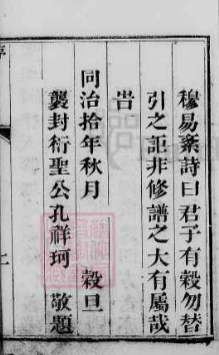 穆易棻詩曰君子有榖勿替
引之詎非修譜之大有屬哉
旹
同治拾年秋月　榖旦
襲封衍聖公孔祥珂敬題